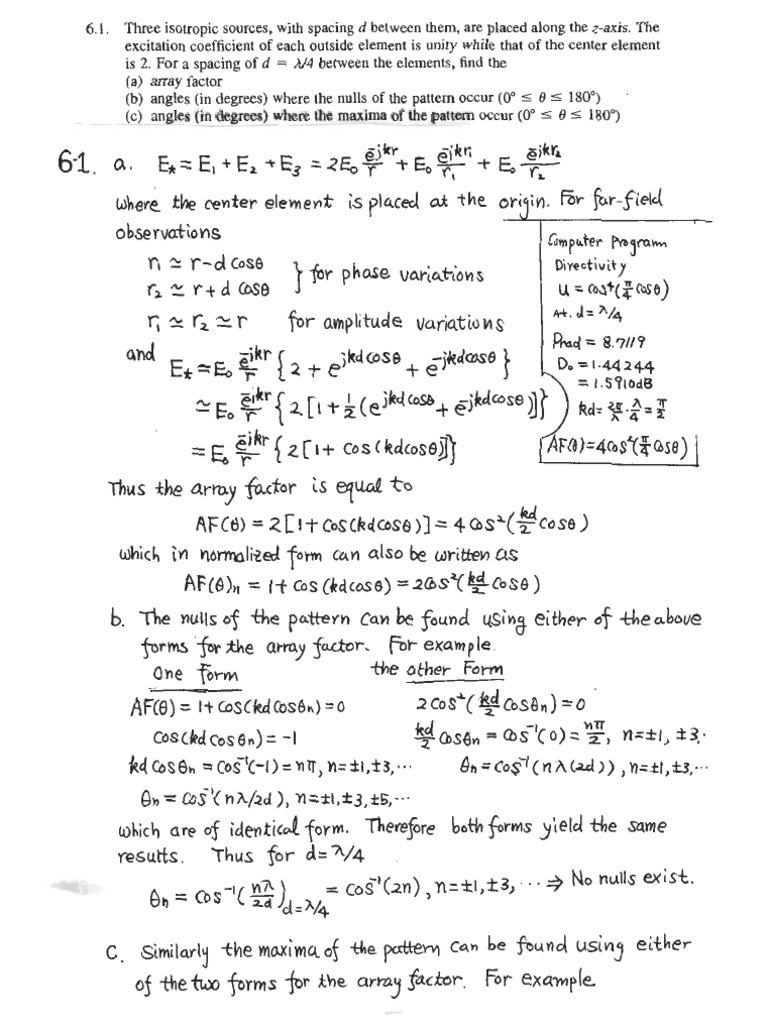 6.1. Three isotropic sources, with spacing d between them, are placed along the z-axis. The
excitation coefficient of each outside element is unity while that of the center element
is 2. For a spacing of d = λ/4 between the elements, find the
(a) array factor
(b) angles (in degrees) where the nulls of the pattern occur (0° ≤ θ ≤ 180°)
(c) angles (in degrees) where the maxima of the pattern occur (0° ≤ θ ≤ 180°)
6-1. a. E_t = E₁ + E₂ + E₃ = 2E₀ e^{-jkr}/r + E₀ e^{-jkr₁}/r₁ + E₀ e^{-jkr₂}/r₂
where the center element is placed at the origin. For far-field
observations
r₁ ≃ r-d cosθ
r₂ ≃ r+d cosθ } for phase variations
r₁ ≃ r₂ ≃ r for amplitude variations
and E_t ≃ E₀ e^{-jkr}/r {2 + e^{jkd cosθ} + e^{-jkd cosθ}}
≃ E₀ e^{-jkr}/r {2[1 + ½(e^{jkd cosθ} + e^{-jkd cosθ})]}
= E₀ e^{-jkr}/r {2[1 + cos(kd cosθ)]}
Computer Program
Directivity
U = cos⁴(π/4 cosθ)
At. d = λ/4
Prad = 8.7119
D₀ = 1.44244
= 1.5910dB
kd = 2π/λ · λ/4 = π/2
AF(θ) = 4cos²(π/4 cosθ)
Thus the array factor is equal to
AF(θ) = 2[1 + cos(kd cosθ)] = 4 cos²(kd/2 cosθ)
which in normalized form can also be written as
AF(θ)n = 1 + cos(kd cosθ) = 2cos²(kd/2 cosθ)
b. The nulls of the pattern can be found using either of the above
forms for the array factor. For example.
One form
AF(θ) = 1 + cos(kd cosθn) = 0
cos(kd cosθn) = -1
kd cosθn = cos⁻¹(-1) = nπ, n = ±1, ±3, ...
θn = cos⁻¹(nλ/2d), n = ±1, ±3, ±5, ...
the other Form
2cos²(kd/2 cosθn) = 0
kd/2 cosθn = cos⁻¹(0) = nπ/2, n = ±1, ±3, .
θn = cos⁻¹(nλ(2d)), n = ±1, ±3, ...
which are of identical form. Therefore both forms yield the same
results. Thus for d = λ/4
θn = cos⁻¹(nλ/2d)_{d=λ/4} = cos⁻¹(2n), n = ±1, ±3, ... ⇒ No nulls exist.
C. Similarly the maxima of the pattern can be found using either
of the two forms for the array factor. For example